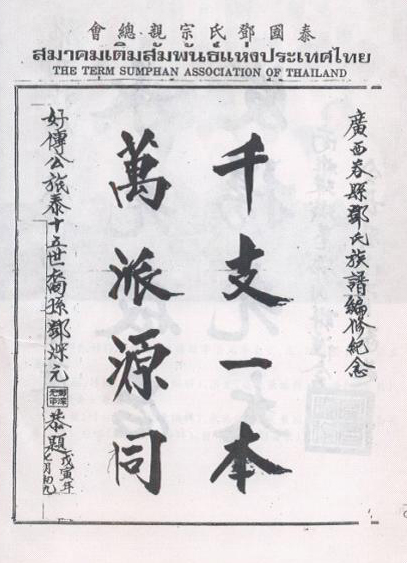 泰國鄧氏宗親總會
สมาคมเติมสัมพันธ์แห่งประเทศไทย
THE TERM SUMPHAN ASSOCIATION OF THAILAND
廣西容縣鄧氏族譜編修紀念
千支一本
萬派源同
好傳公旅泰十五世裔孫鄧深元
恭題
戊寅年
七月初九